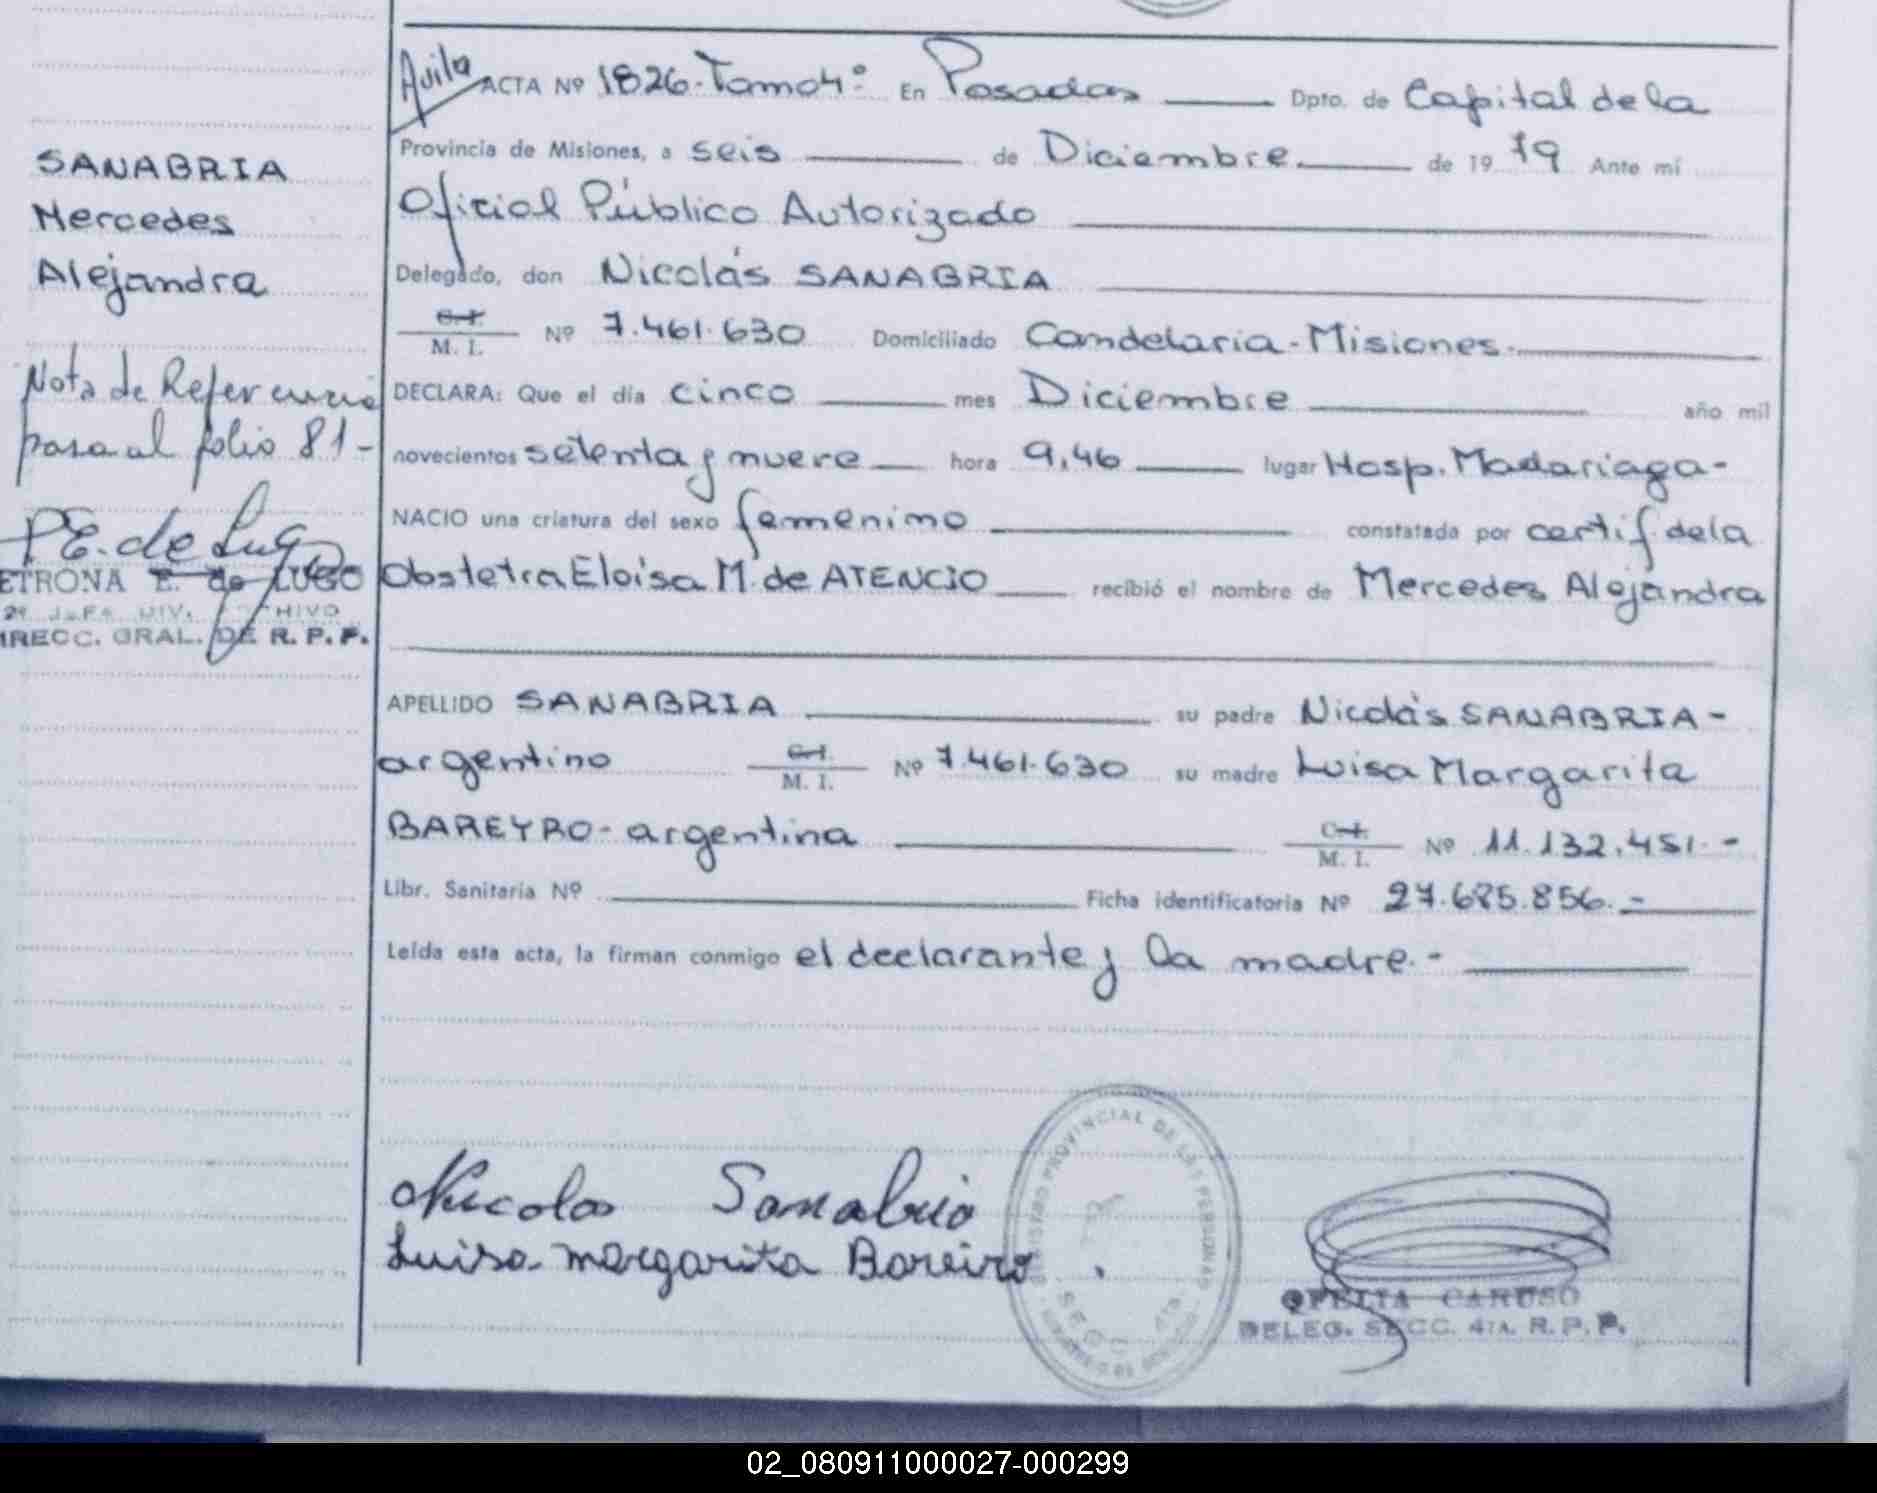 Avila ACTA Nº 1826. Tomo 4º En Posadas Dpto. de Capital de la
Provincia de Misiones, a seis de Diciembre de 19 79 Ante mí
Oficial Público Autorizado
Delegado, don Nicolás SANABRIA
C. I.
M. I. Nº 7.461.630 Domiciliado Candelaria - Misiones.
DECLARA: Que el día cinco mes Diciembre año mil
novecientos setenta y nueve hora 9,46 lugar Hosp. Madariaga-
NACIO una criatura del sexo femenino constatada por certif. de la
Obstetra Eloisa M. de ATENCIO recibió el nombre de Mercedes Alejandra
APELLIDO SANABRIA su padre Nicolás SANABRIA -
argentino C. I.
M. I. Nº 7.461.630 su madre Luisa Margarita
BAREYRO - argentina C. I.
M. I. Nº 11.132.451.-
Libr. Sanitaria Nº Ficha identificatoria Nº 27.685.856.-
Leída esta acta, la firman conmigo el declarante y la madre.-
Nicolas Sanabria
Luisa margarita Bareiro.
REGISTRO PROVINCIAL DE LAS PERSONAS
SECC. 4ta.
OFELIA CARUSO
DELEG. SECC. 4TA. R. P. P.
SANABRIA
Mercedes
Alejandra
Nota de Referencia
pasa al folio 81-
PE. de Lugo
ETRONA E. de LUGO
JEFE DIV.
IRECC. GRAL. DE R. P. P.
02_080911000027-000299